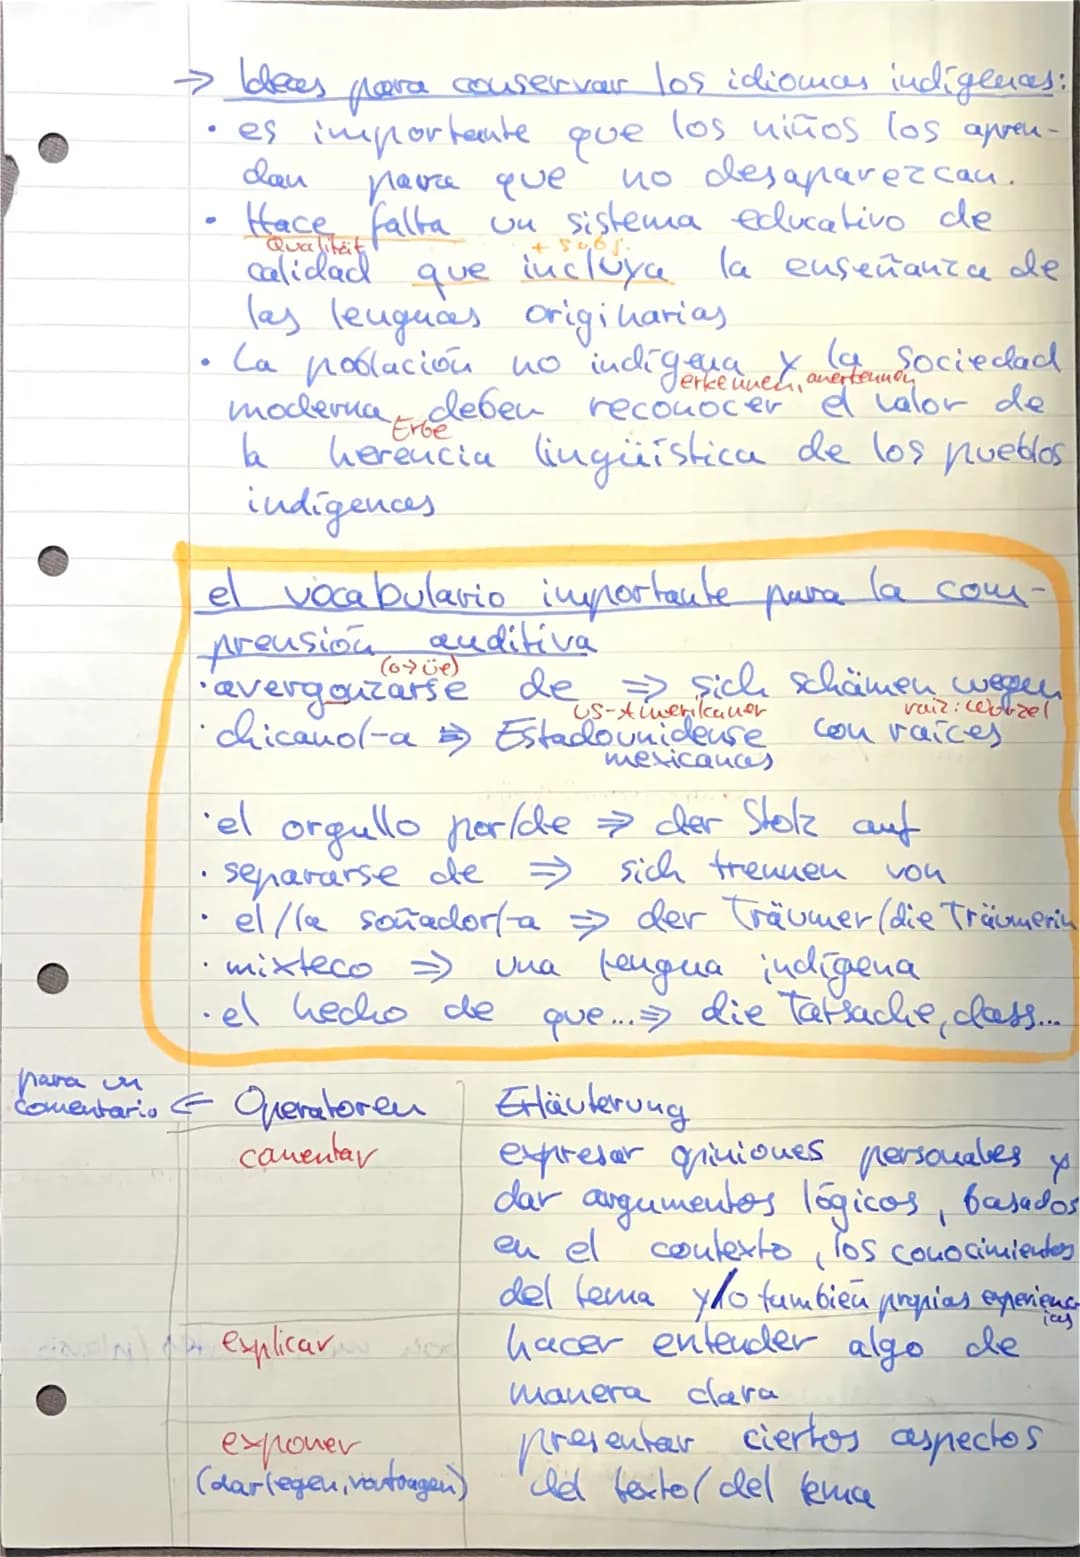 → Ideas para conservar los idiomas indígenas:
• es importante que los niños los apren-
dan para que no desaparezcan.
• Hace falta un sistema educativo de
Qualität + subj.
calidad que incluya la enseñanza de
las lenguas originarias
• La población no indígena y la sociedad
erkennen, anerkennen
moderna deben reconocer el valor de
Erbe
la herencia lingüística de los pueblos
indígenas
el vocabulario importante para la com-
prensión auditiva
(o→üe)
• avergonzarse de ⇒ sich schämen wegen
US-Amerikaner raíz: Wurzel
• chicano/-a ⇒ Estadounidense con raíces
mexicanas
• el orgullo por/de ⇒ der Stolz auf
• separarse de ⇒ sich trennen von
• el/la soñador/-a ⇒ der Träumer/die Träumerin
• mixteco ⇒ una lengua indígena
• el hecho de que...⇒ die Tatsache, dass...
para un
comentario ← Operatoren Erläuterung
comentar expresar opiniones personales y
dar argumentos lógicos, basados
en el contexto, los conocimientos
del tema y/o también propias experienc-
ias
explicar hacer entender algo de
manera clara
exponer presentar ciertos aspectos
(darlegen, vortragen) del texto/del tema